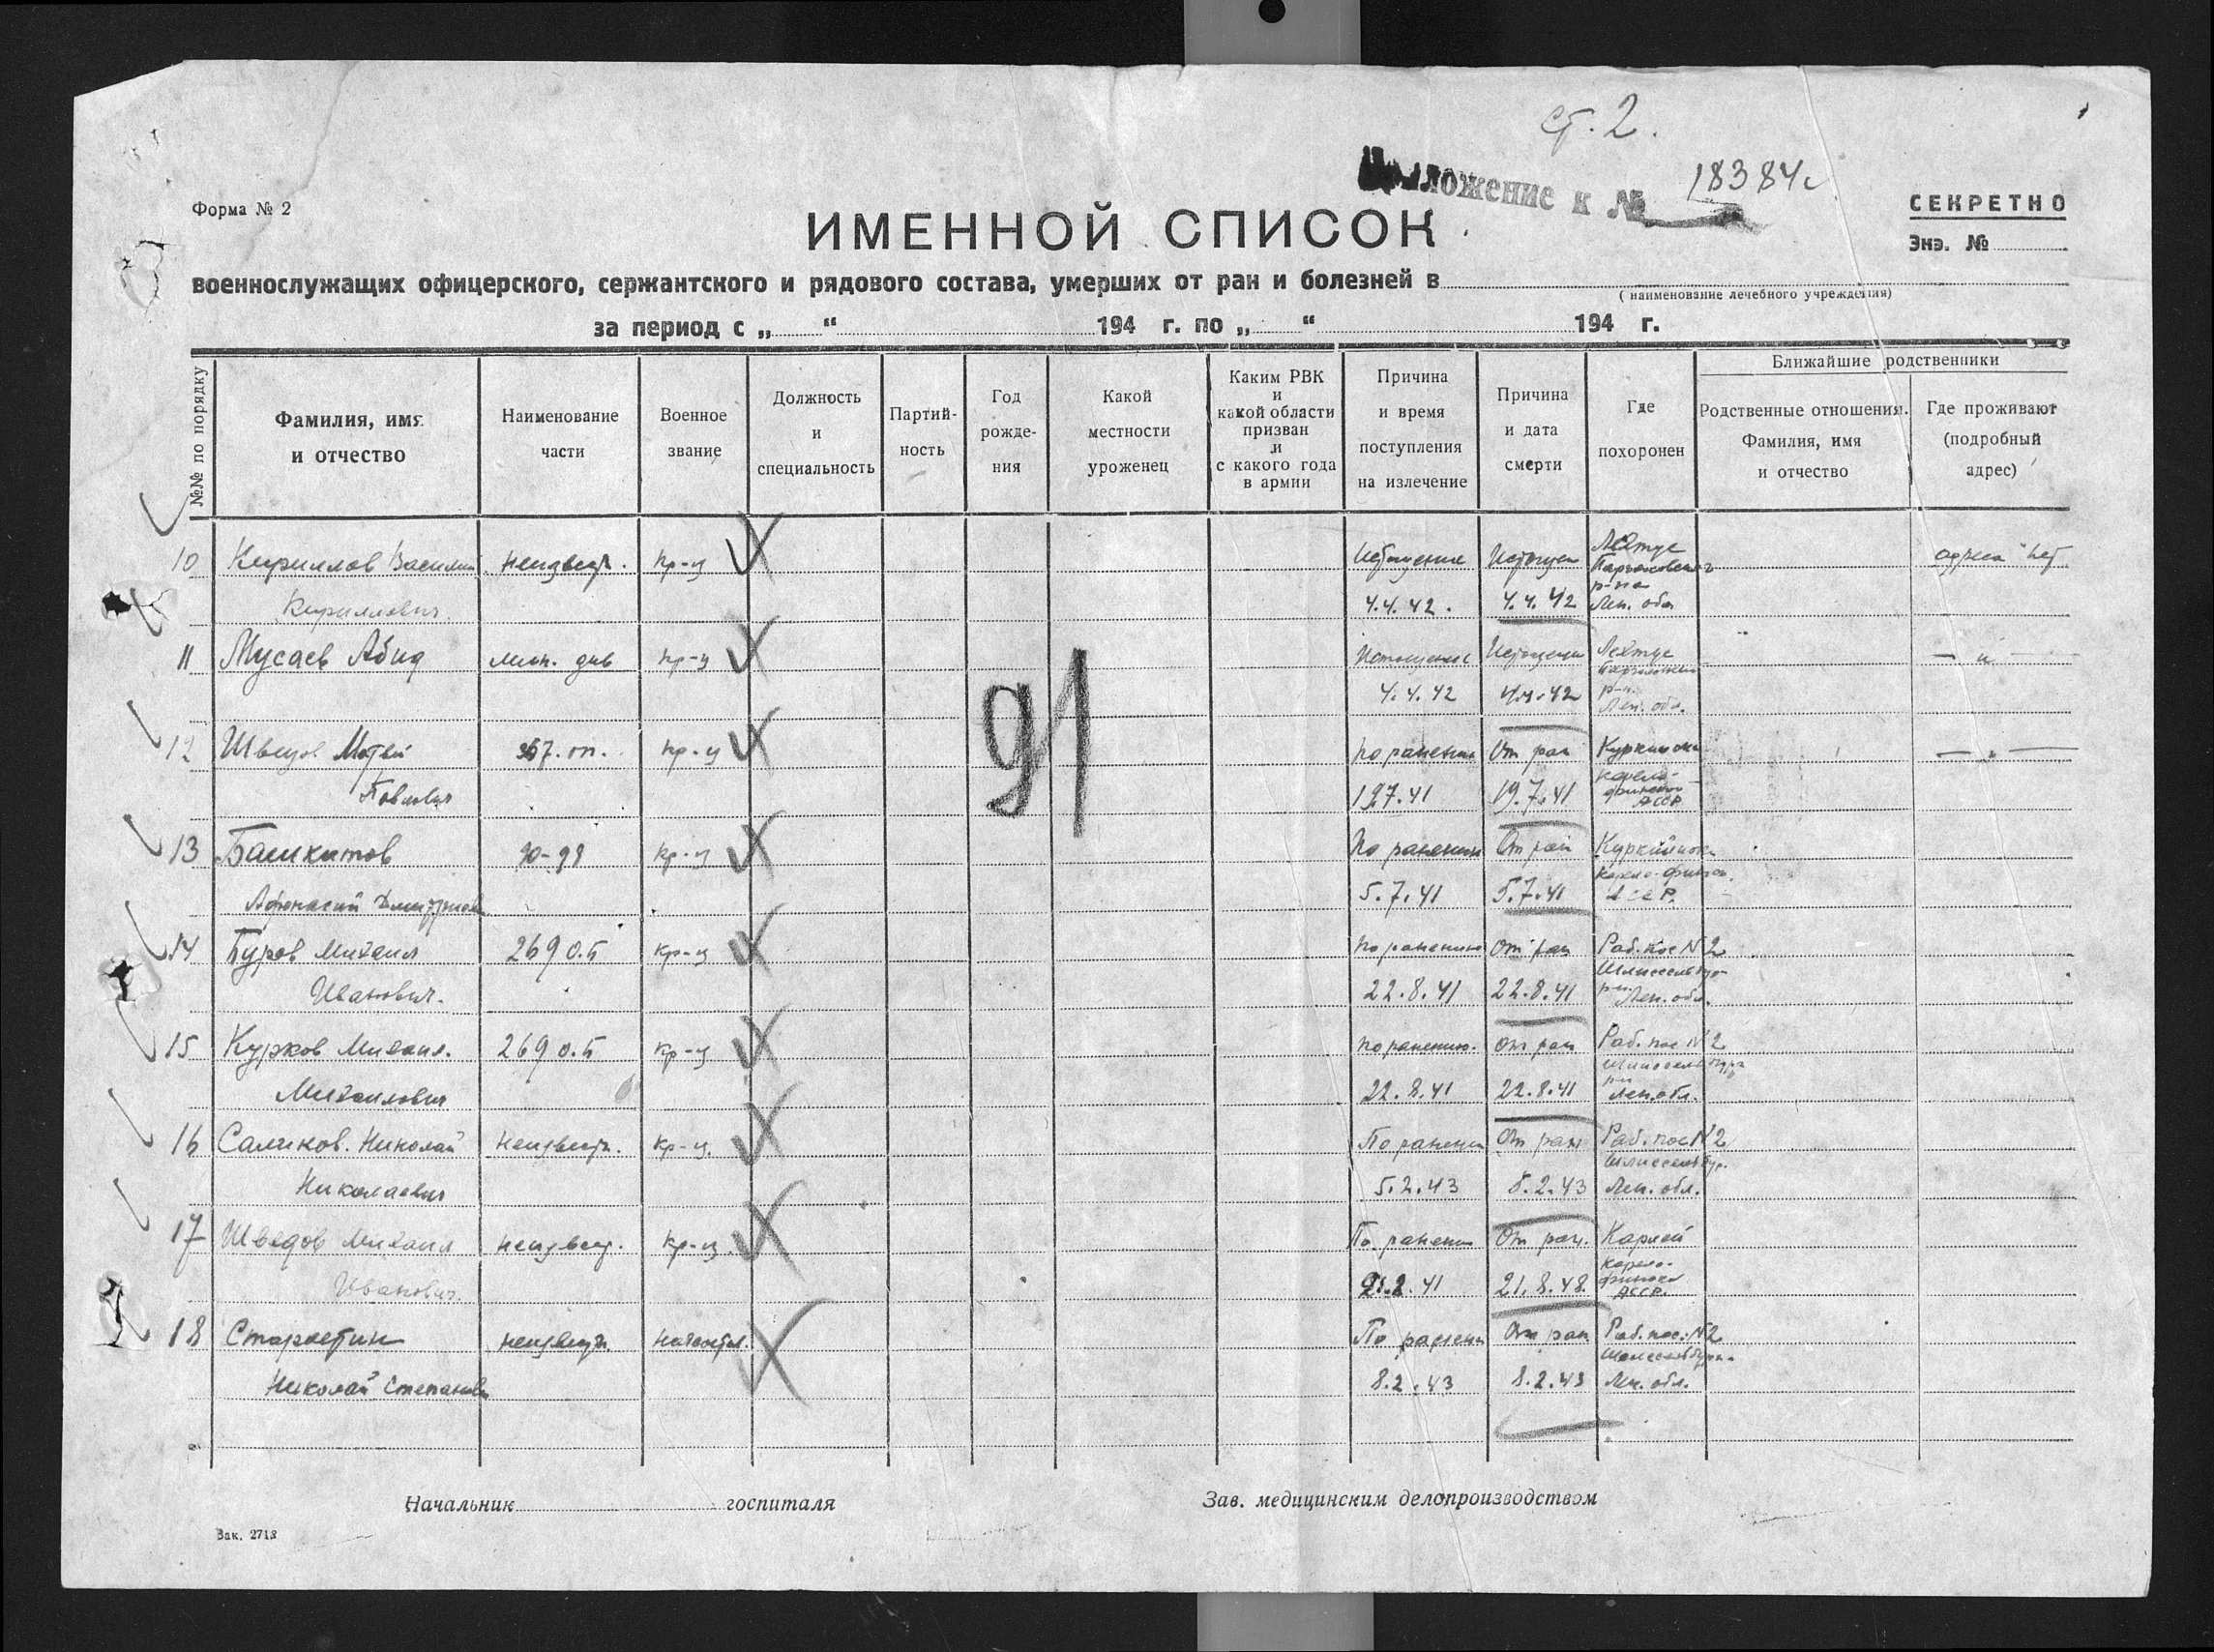 ст. 2.
Приложение к № 18384с
Форма № 2
СЕКРЕТНО
ИМЕННОЙ СПИСОК
Экз. №
военнослужащих офицерского, сержантского и рядового состава, умерших от ран и болезней в
(наименование лечебного учреждения)
за период с „ “ 194 г. по „ “ 194 г.
№№ по порядку
Фамилия, имя и отчество
Наименование части
Военное звание
Должность и специальность
Партий-ность
Год рожде-ния
Какой местности уроженец
Каким РВК и какой области призван и с какого года в армии
Причина и время поступления на излечение
Причина и дата смерти
Где похоронен
Ближайшие родственники
Родственные отношения. Фамилия, имя и отчество
Где проживают (подробный адрес)
10 Кириллов Василий неизвест. кр-ц Истощение Лехтус адреса нет
Кириллович. 4.4.42. 4.4.42 р-на Лен. обл
11 Мусаев Абид мин. див кр-ц Истощение Лехтус — " —
4.4.42 4.4.42 р-н. Лен. обл.
91
12 Швецов Матвей кр-ц по ранению От ран — " —
Павлович 19.7.41 19.7.41 карело-финской АССР
13 Башкитов кр-ц По ранению От ран
Афонасий Дмитриев 5.7.41 5.7.41
14 Буров Михаил 269 о.б кр-ц по ранению От ран Раб. пос N 2
Иванович. 22.8.41 22.8.41 Лен. обл.
15 Курков Михаил. 269 о.б кр-ц по ранению. От ран Раб. пос N 2
Михайлович 22.8.41 22.8.41 Лен. обл.
16 Саликов. Николай неизвест. кр-ц. По ранени От ран Раб. пос N 2
Николаевич 5.2.43 8.2.43 Лен. обл.
17 Шведов Михаил неизвест. кр-ц. По ранени От ран.
Иванович. 41 21.8.48. АССР.
18 неизвестн По ранени От ран Раб. пос. N 2
Николай Степанови 8.2.43 8.2.43 Лен. обл.
Начальник госпиталя
Зав. медицинским делопроизводством
Зак. 2718